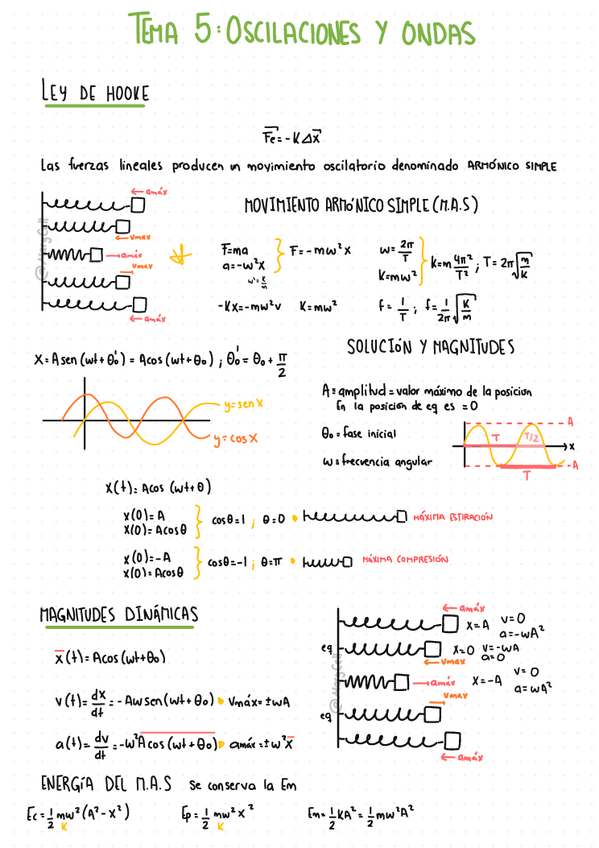 TEMA 5: OSCILACIONES Y ONDAS
LEY DE HOOKE
Fe = -K Δx
Las fuerzas lineales producen un movimiento oscilatorio denominado ARMÓNICO SIMPLE
MOVIMIENTO ARMÓNICO SIMPLE (M.A.S)
← amáx
← vmax
→ amáx
→ vmax
← amáx
F=ma
a=-w²x
w²=K/m
F=-mw²x
w=2π/T
K=mw²
K=m 4π²/T² ; T=2π√(m/K)
-Kx=-mw²v K=mw²
f=1/T ; f=1/2π √(K/m)
SOLUCIÓN Y MAGNITUDES
X=Asen(wt+θ₀')=Acos(wt+θ₀) ; θ₀'=θ₀+π/2
y=senx
y=cosx
A=amplitud=valor máximo de la posicion
En la posición de eq es =0
θ₀=fase inicial
w=frecuencia angular
A
T
T/2
x
-A
T
X(t)=Acos(wt+θ)
X(0)=A
X(0)=Acosθ
cosθ=1 ; θ=0
MÁXIMA ESTIRACIÓN
X(0)=-A
X(0)=Acosθ
cosθ=-1 ; θ=π
MÁXIMA COMPRESIÓN
MAGNITUDES DINÁMICAS
x(t)=Acos(wt+θ₀)
v(t)=dx/dt=-Awsen(wt+θ₀) vmáx=±wA
a(t)=dv/dt=-w²Acos(wt+θ₀) amáx=±w²x
← amáx
X=A v=0
a=-wA²
eq
X=0 v=-wA
a=0
← vmax
→ amáx
X=-A v=0
a=wA²
→ vmax
eq
← amáx
ENERGÍA DEL M.A.S Se conserva la Em
Ec=1/2 mw²(A²-x²) Ep=1/2 mw²x² Em=1/2 KA²=1/2 mw²A²
K K